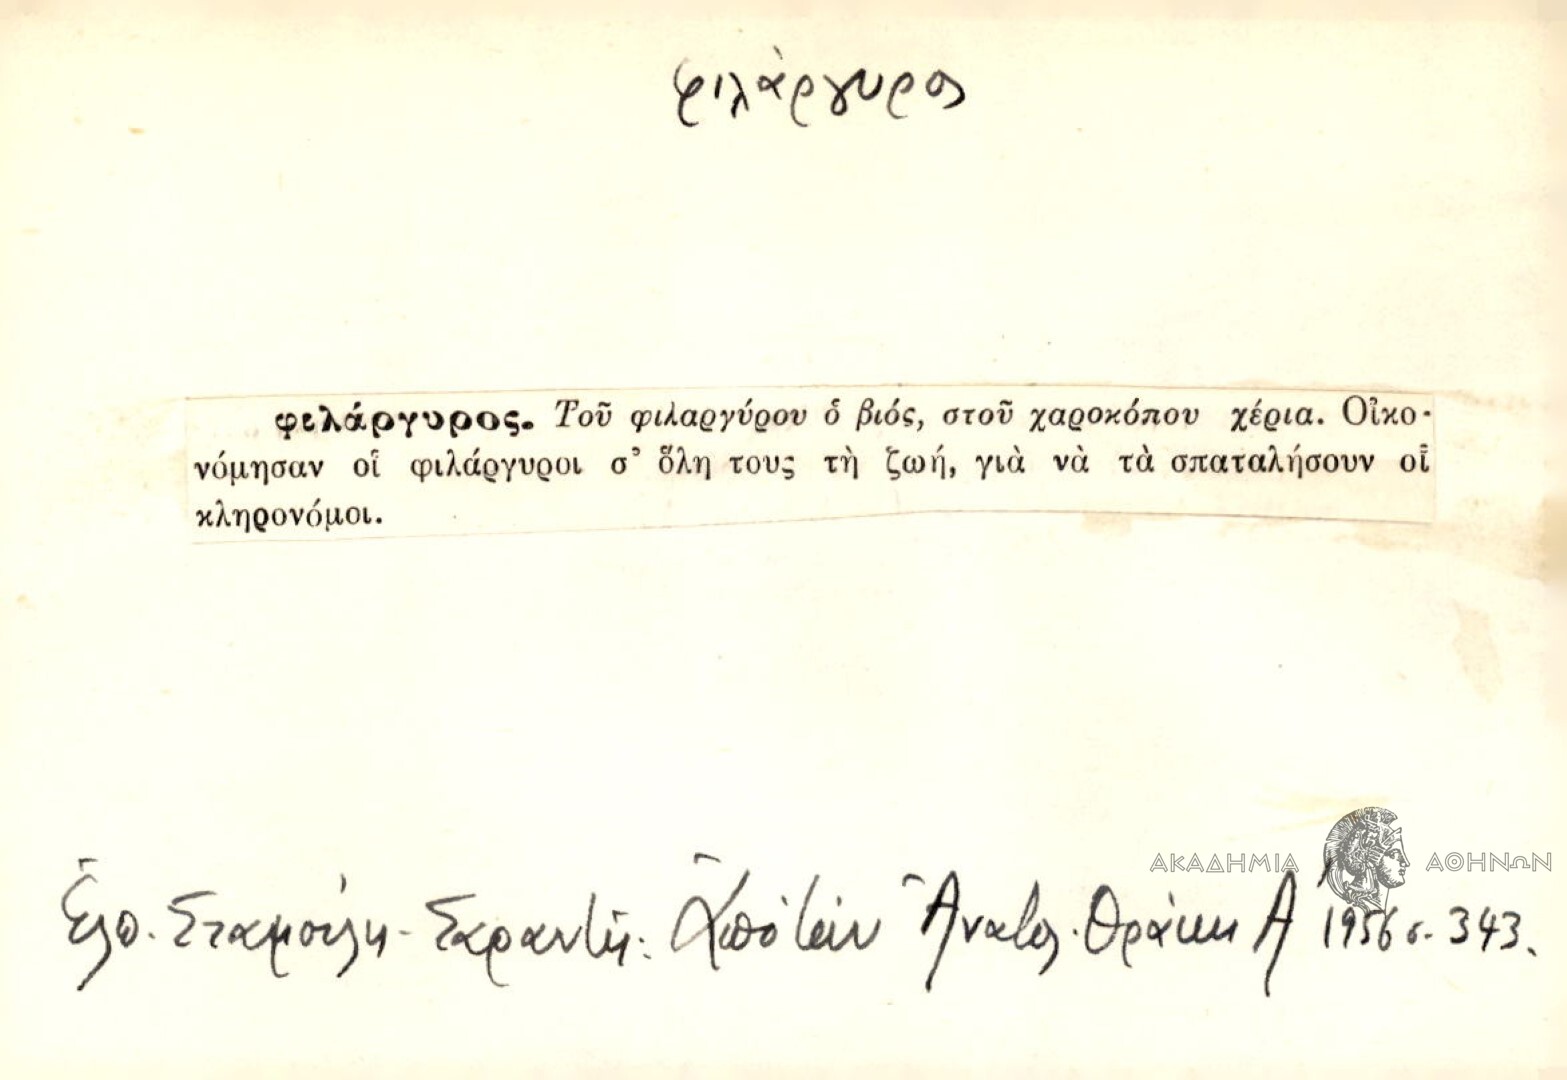 φιλάργυρος
φιλάργυρος. Τοῦ φιλαργύρου ὁ βιός, στοῦ χαροκόπου χέρια. Οἰκο-
νόμησαν οἱ φιλάργυροι σ' ὅλη τους τὴ ζωή, γιὰ νὰ τὰ σπαταλήσουν οἱ
κληρονόμοι.
ΑΚΑΔΗΜΙΑ ΑΘΗΝΩΝ
Ἐλπ. Σταμούλη - Σαραντῆ: Ἀπὸ τὴν Ἀνατολ. Θράκη Α' 1956 σ. 343.